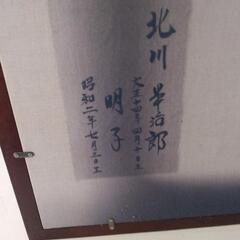 北川 治郎
大正十四年四月十日生
明子
昭和二年七月三日生